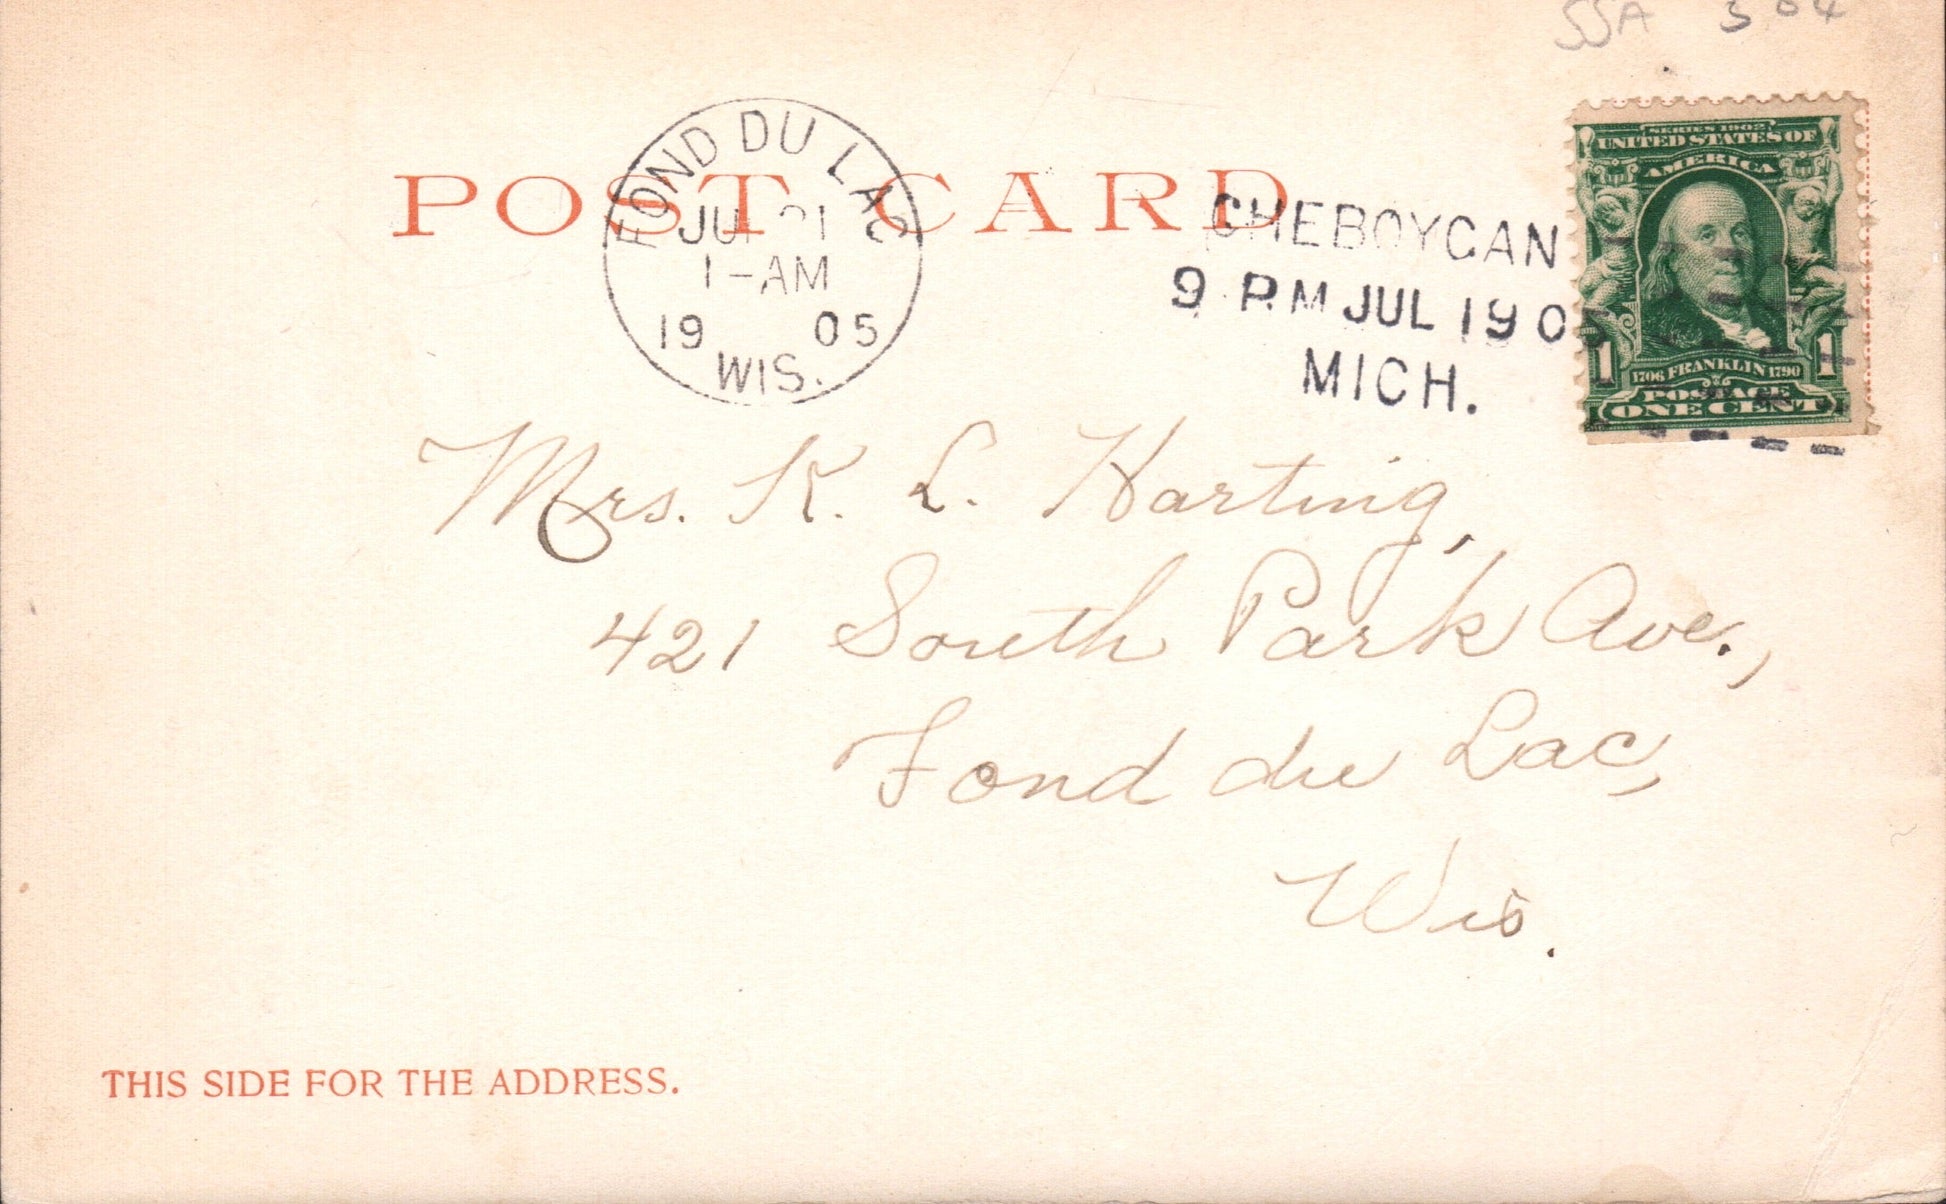 SSA 304
POST CARD
FOND DU LAC
JUL 21
1-AM
19 05
WIS.
CHEBOYGAN
9 PM JUL 19 05
MICH.
SERIES 1902
UNITED STATES OF
AMERICA
1 1
1706 FRANKLIN 1790
POSTAGE
ONE CENT
Mrs. K. L. Harting,
421 South Park Ave.,
Fond du Lac,
Wis.
THIS SIDE FOR THE ADDRESS.